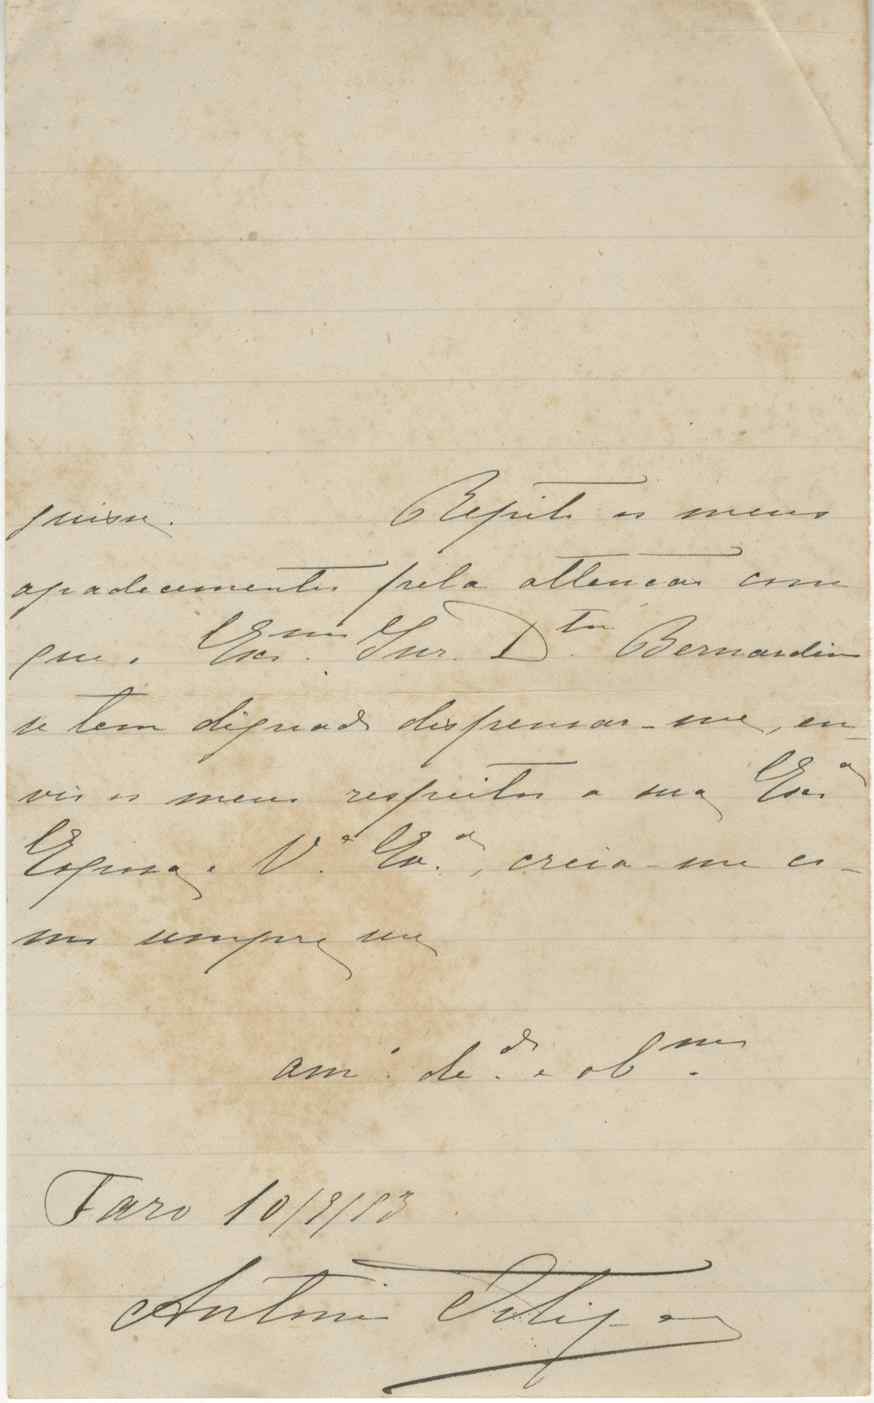 Repito os meus
agradecimentos pela attenção com
que o Exmo. Snr. Dtor. Bernardino
se tem dignado dispensar-me, en-
vio os meus respeitos a sua Exa
Esposa e V.ª Ex.ª, creia-me co-
mo sempre
am.º de.do e obmo.
Faro 10/9/93
Antonio